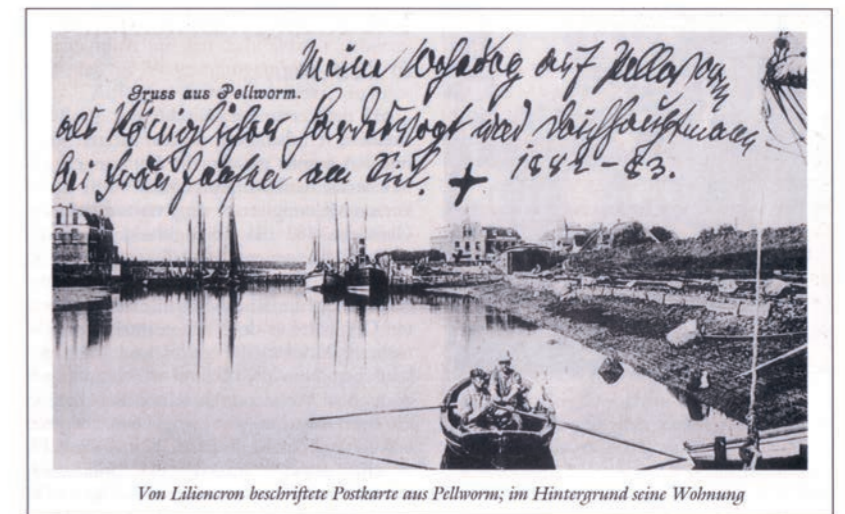 Meine Wohnung auf Pellworm
Gruss aus Pellworm.
als Königlicher Hardesvogt und Deichhauptmann
bei Frau Jansen am Siel. + 1882-83.
Von Liliencron beschriftete Postkarte aus Pellworm; im Hintergrund seine Wohnung